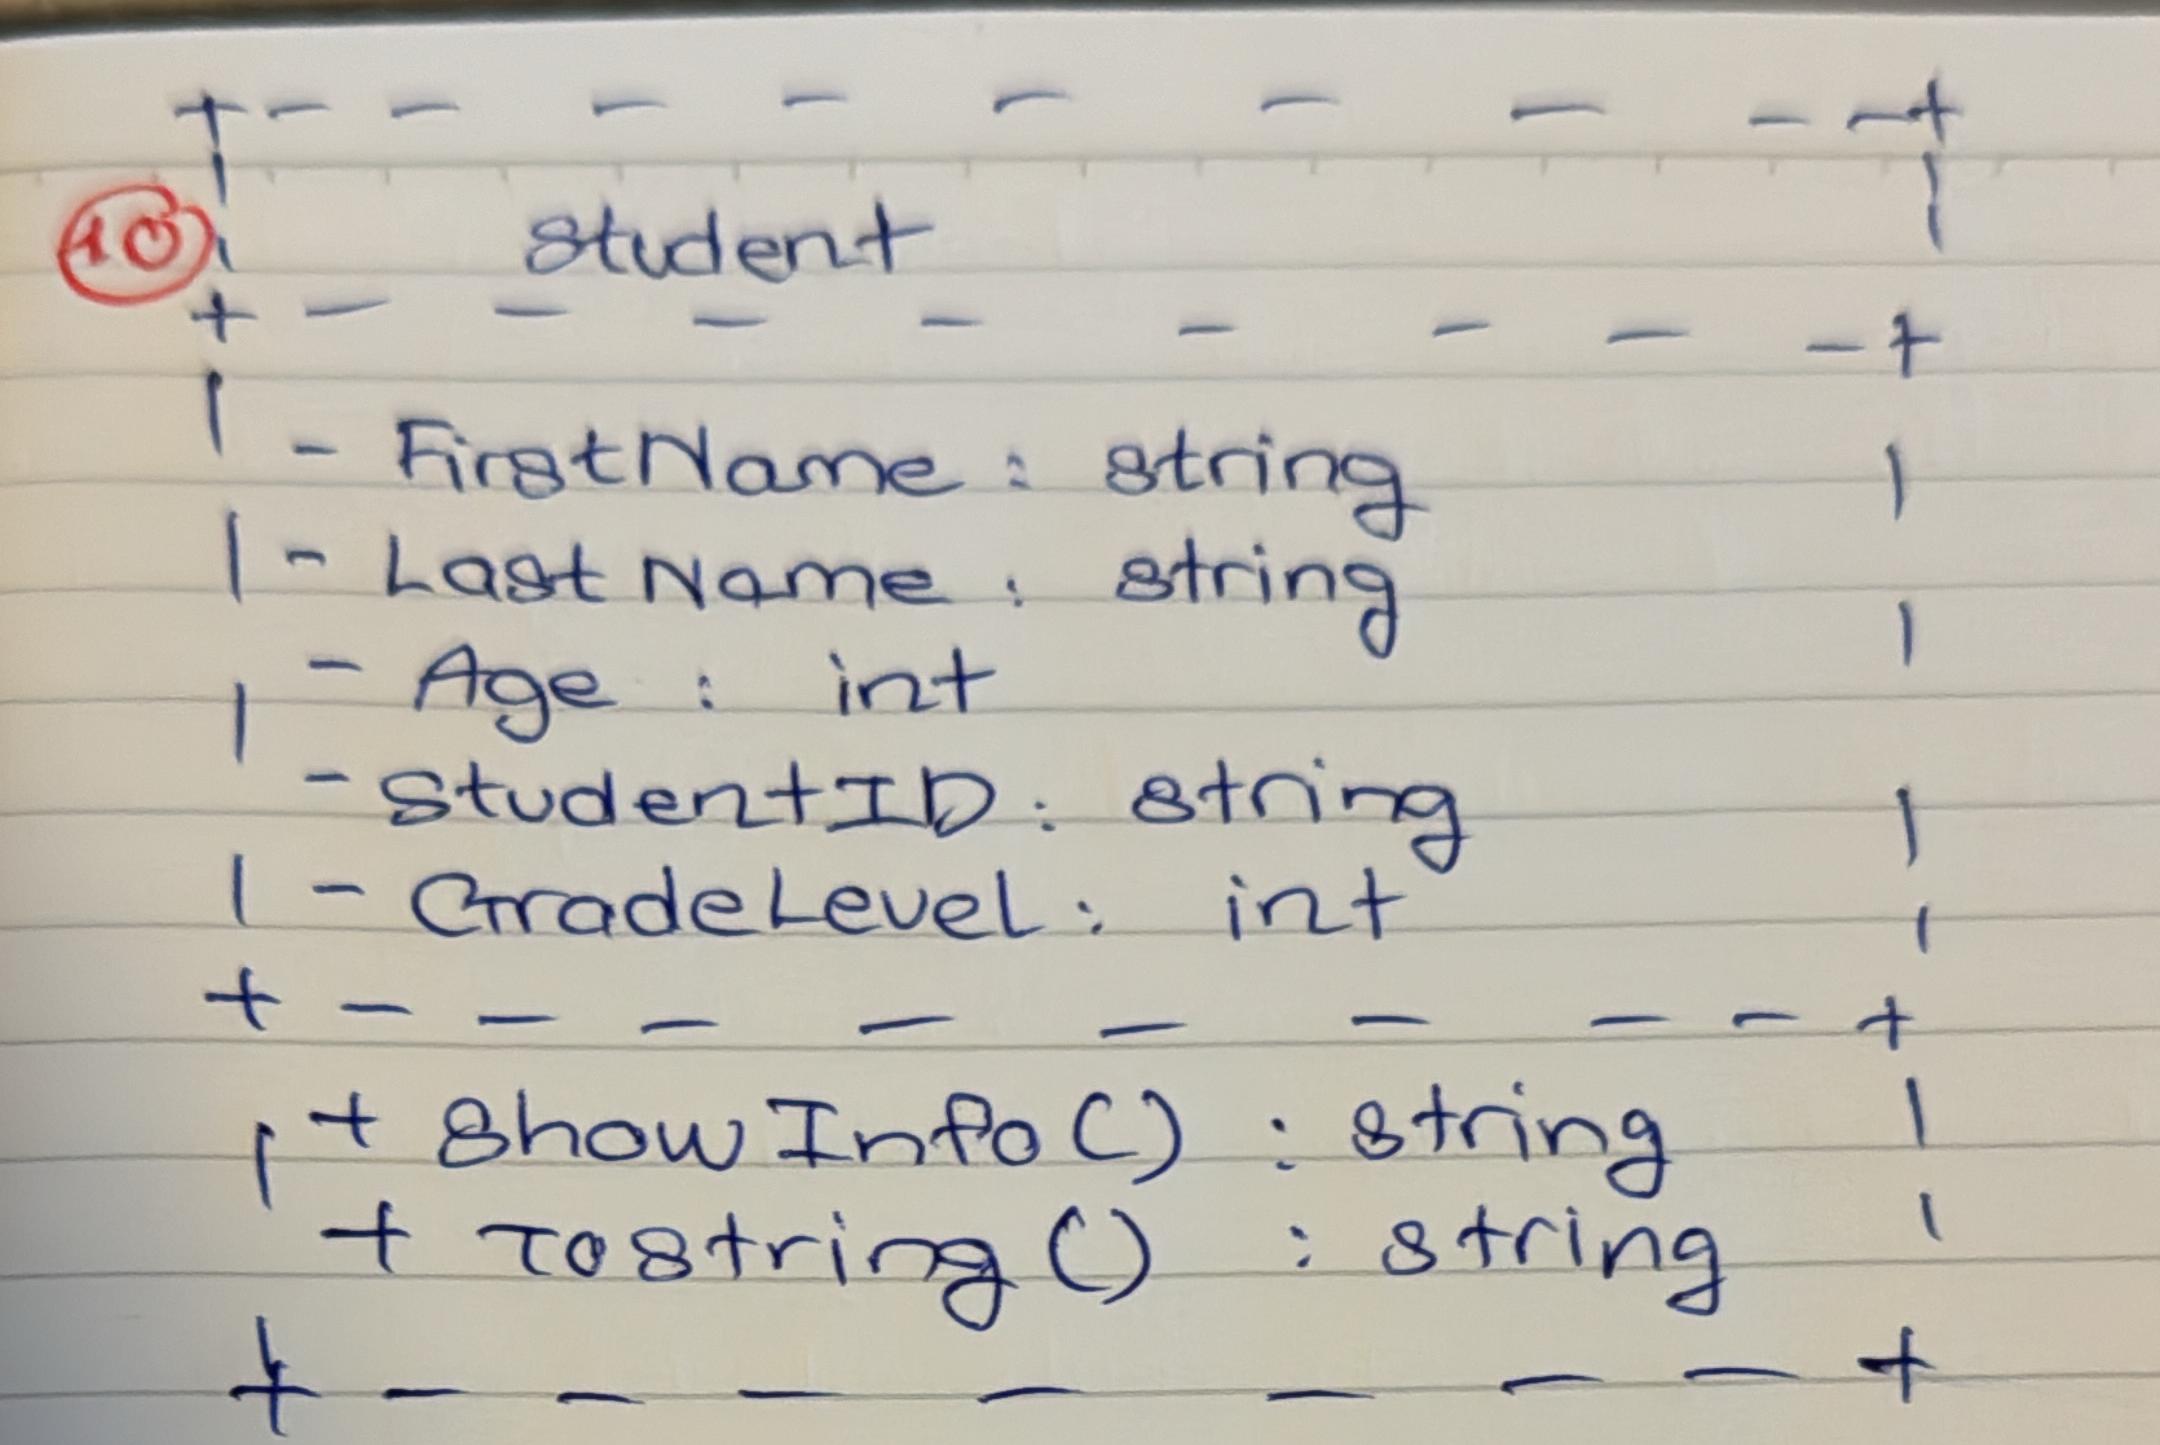 + - - - - - - - - +
10 | Student |
+ - - - - - - - - +
| - FirstName : string |
| - LastName : string |
| - Age : int
- StudentID : string |
| - GradeLevel : int |
+ - - - - - - - - +
| + ShowInfo() : string |
+ ToString() : string |
+ - - - - - - - +